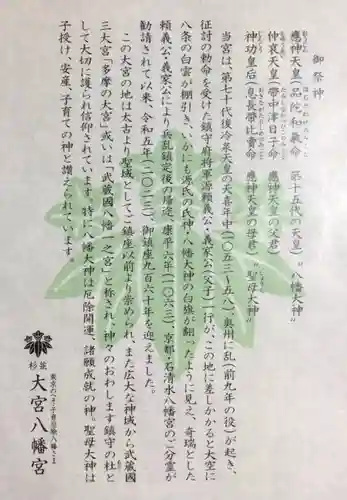 御祭神
應神天皇(品陀和氣命　第十五代の天皇)〝八幡大神〟
仲哀天皇(帶中津日子命　應神天皇の父君)
神功皇后(息長帶比賣命　應神天皇の母君)〝聖母大神〟
当宮は、第七十代後冷泉天皇の天喜年中(一〇五三～五八)、奥州に乱(前九年の役)が起き、
征討の勅命を受けた鎮守府将軍源頼義公・義家公(父子)一行が、この地に差しかかると大空に
八条の白雲が棚引き、いかにも源氏の氏神・八幡大神の白旗が翻ったように見え、奇瑞とした
頼義公・義家公により兵乱鎮定後の帰途、康平六年(一〇六三)、京都・石清水八幡宮のご分霊が
勧請されて以来、令和五年(二〇二三)、御鎮座九百六十年を迎えました。
この大宮の地は太古より聖域としてご鎮座以前より崇められ、また広大な神域から武蔵國
三大宮「多摩の大宮」或いは「武蔵國八幡一之宮」と称され、神々のおわします鎮守の杜と
して大切に護られ信仰されています。特に八幡大神は厄除開運、諸願成就の神。聖母大神は
子授け・安産、子育ての神と讃えられています。
東京のへそ子育厄除八幡さま
杉並
大宮八幡宮